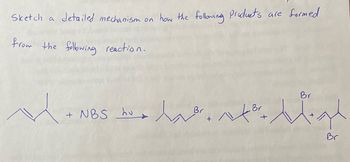 Sketch a detailed mechanism on how the following products are formed
from the following reaction.
+ NBS hν → Br + Br + Br + Br